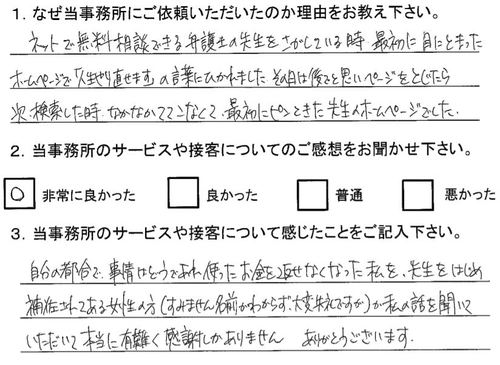 1. なぜ当事務所にご依頼いただいたのか理由をお教え下さい。
ネットで無料相談できる弁護士の先生をさがしている時 最初に目にとまった
ホームページで「人生やり直せます」の言葉にひかれました その日は後でと思いページをとじたら
次、検索した時、なかなかでてこなくて、最初にピンときた先生のホームページでした。
2. 当事務所のサービスや接客についてのご感想をお聞かせ下さい。
○ 非常に良かった 良かった 普通 悪かった
3. 当事務所のサービスや接客について感じたことをご記入下さい。
自分の都合で、事情はどうであれ 使ったお金を返せなくなった私を、先生をはじめ
補佐されてある女性の方(すみません名前がわからず、大変失礼ですが)が私の話を聞いて
いただいて本当に有難く感謝しかありません ありがとうございます。